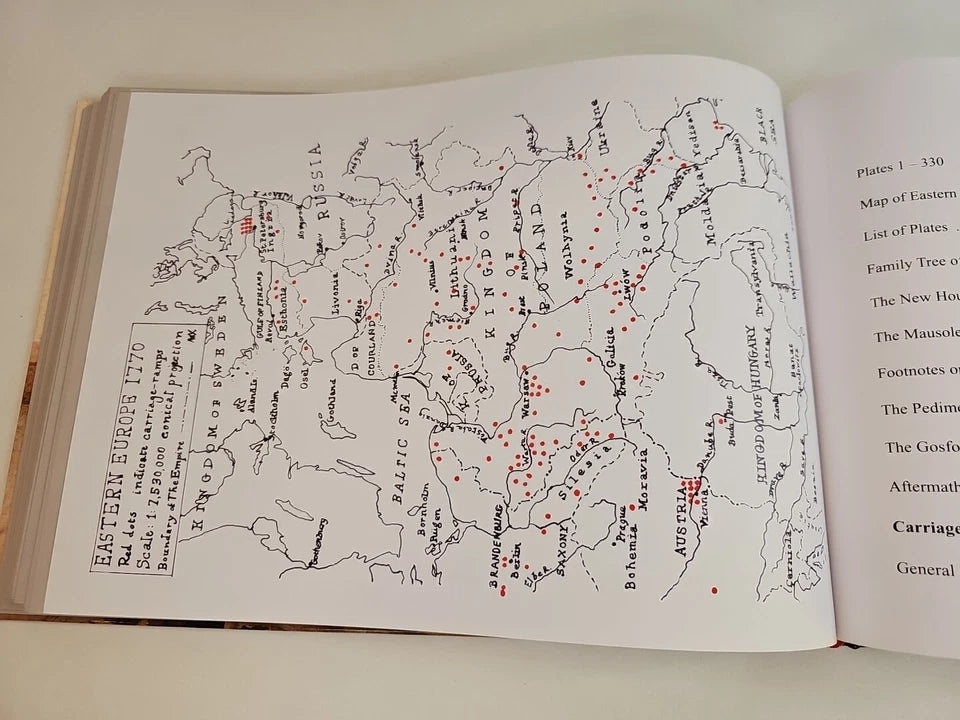 EASTERN EUROPE 1770
Red dots indicate carriage-ramps
Scale: 1: 7,530,000 conical projection
Boundary of The Empire
KINGDOM OF SWEDEN
Gothenburg
Stockholm
Alandia
GULF OF FINLAND
St. Petersburg
Ingria
RUSSIA
Reval
Eschonia
Dagö
Osel
Gothland
Livonia
Riga
D OF
COURLAND
Dvina R
BALTIC SEA
Bornholm
Rugen
Memel
Vilnius
Lithuania
Grodno
Minsk
Vitebsk
Smolensk
KINGDOM
OF
POLAND
Pripet R
Pinsk
Brest
Bug R
Warsaw
Warta R
Oder R
Silesia
BRANDENBURG
Berlin
Elbe R
SAXONY
Prague
Bohemia
Moravia
Kraków
Galicia
Lwów
Wolhynia
Podolia
Kiev
Ukraine
Yedisan
BLACK
SEA
Bessarabia
Moldavia
Transylvania
Wallachia
Banat
KINGDOM OF HUNGARY
Buda
Pest
Danube R
AUSTRIA
Vienna
Carniola
Plates 1 – 330
Map of Eastern
List of Plates
Family Tree o
The New Hou
The Mausole
Footnotes o
The Pedime
The Gosfo
Aftermath
Carriage
General